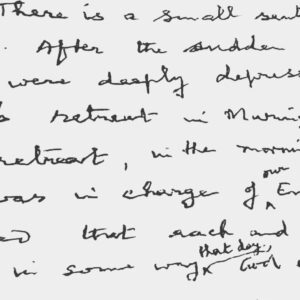 There is a small sent
. After the sudden
were deeply depress
s retreat in Murnin
retreat, in the mornin
was in charge of our En
ed that each and
in some way that day, God